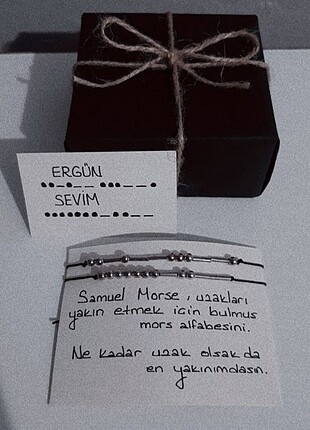 ERGÜN
SEVİM
Samuel Morse, uzakları
yakın etmek için bulmuş
mors alfabesini.
Ne kadar uzak olsak da
en yakınımdasın.